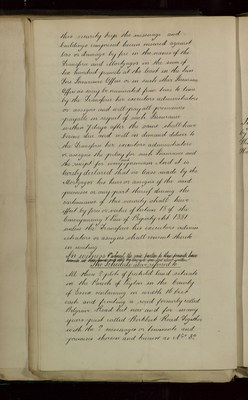 this security keep the messuage and
buildings comprised herein insured against
loss or damage by fire in the names of the
Transferee and Mortgagor in the sum of
six hundred pounds at the least in the Sun
Fire Insurance Office or in such other Insurance
Office as may be nominated from time to time
by the Transferee her executors administrators
or assigns and will pay all premiums
payable in respect of such Insurance
within 7 days after the same shall have
become due and will on demand deliver to
the Transferee her executors administrators
or assigns the policy for such Insurance and
the receipt for every premium And it is
hereby declared that no lease made by the
Mortgagor his heirs or assigns of the said
premises or any part thereof during the
continuance of this security shall have
effect by force or virtue of Section 18 of the
Conveyancing & Law of Property Act 1881
unless the Transferee her executors admin
istrators or assigns shall consent thereto
in writing
In witness whereof the said parties to these presents have
The Schedule above referred to
All those 2 plots of freehold land situate
in the Parish of in the County
of Essex containing in width 16 feet
each and fronting a road formerly called
Road but now and for many
years past called Road Together
with the 2 messuages or tenements and
premises thereon and known as Nos